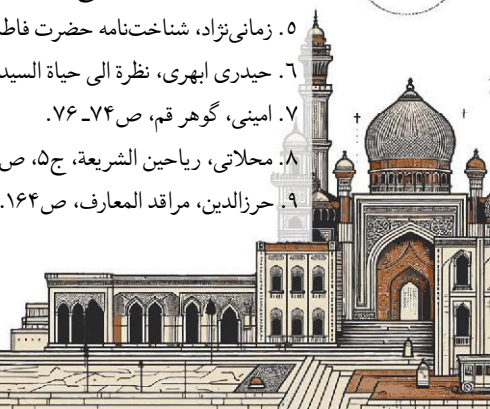 ۵. زمانی‌نژاد، شناخت‌نامه حضرت
۶. حیدری ابهری، نظرة الی حیاة
۷. امینی، گوهر قم، ص۷۴ـ ۷۶.
۸. محلاتی، ریاحین الشریعة، ج۵، ص
۹. حرزالدین، مراقد المعارف، ص۱۶۴.